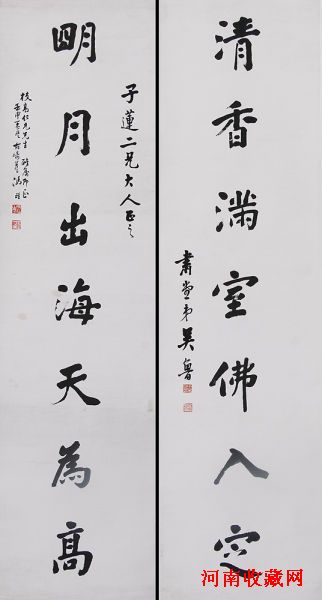 清香滿室佛入定
肅堂弟吳魯
子蓮二兄大人正之
明月出海天為高
仁兄先生
河南收藏网